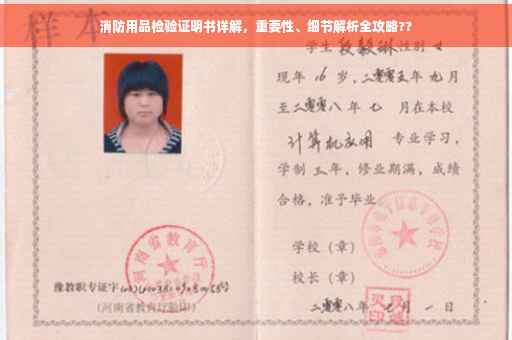 样本
消防用品检验证明书详解，重要性、细节解析全攻略??
学生段毅琳性别女
现年16岁，二零零五年九月
至二零零八年七月在本校
计算机应用 专业学习，
学制三年，修业期满，成绩
合格，准予毕业。
学校（章）
校长（章）
二零零八年 月一日
河南省教育厅
豫教职专证字
（河南省教育厅验印）